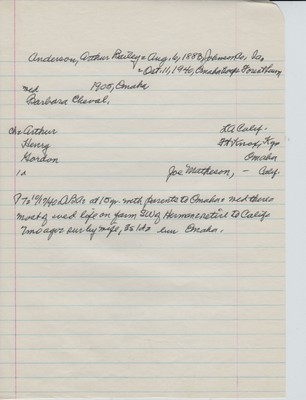 Anderson, Arthur Bailey = Aug. 6, 1880, Johnson Co., Ia.
= Oct. 11, 1940, Omaha
med 1905, Omaha
Barbara Cheval,
Ch: Arthur LA Calif.
Henry Ft Knox, Ky
Gordon Omaha
1 d Joe Matheson, - Calif.
at 10 yr. with parents to Omaha + wed there
most of wed life on farm SW of Herman retire to Calif
7 mo ago = sur by wife, 3s 1d = bur Omaha.